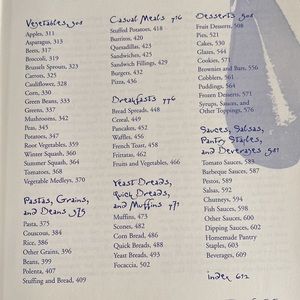 Vegetables, 308
Apples, 311
Asparagus, 313
Beets, 317
Broccoli, 319
Brussels Sprouts, 323
Carrots, 325
Cauliflower, 328
Corn, 330
Green Beans, 333
Greens, 337
Mushrooms, 342
Peas, 345
Potatoes, 347
Root Vegetables, 359
Winter Squash, 360
Summer Squash, 364
Tomatoes, 368
Vegetable Medleys, 370
Pastas, Grains,
and Beans 375
Pasta, 375
Couscous, 384
Rice, 386
Other Grains, 396
Beans, 399
Polenta, 407
Stuffing and Bread, 409
Casual Meals 416
Stuffed Potatoes, 418
Burritos, 420
Quesadillas, 423
Sandwiches, 424
Sandwich Fillings, 429
Burgers, 432
Pizza, 436
Breakfasts 446
Bread Spreads, 448
Cereal, 449
Pancakes, 452
Waffles, 456
French Toast, 458
Frittatas, 462
Fruits and Vegetables, 466
Yeast Breads,
Quick Breads,
and Muffins 471
Muffins, 473
Scones, 482
Corn Bread, 486
Quick Breads, 488
Yeast Breads, 493
Focaccia, 502
Desserts 508
Fruit Desserts, 508
Pies, 521
Cakes, 530
Glazes, 544
Cookies, 571
Brownies and Bars, 556
Cobblers, 561
Puddings, 564
Frozen Desserts, 571
Syrups, Sauces, and
Other Toppings, 576
Sauces, Salsas,
Pantry Staples,
and Beverages 581
Tomato Sauces, 583
Barbeque Sauces, 587
Pestos, 589
Salsas, 592
Chutneys, 594
Fish Sauces, 598
Other Sauces, 600
Dipping Sauces, 602
Homemade Pantry
Staples, 603
Beverages, 609
index 612